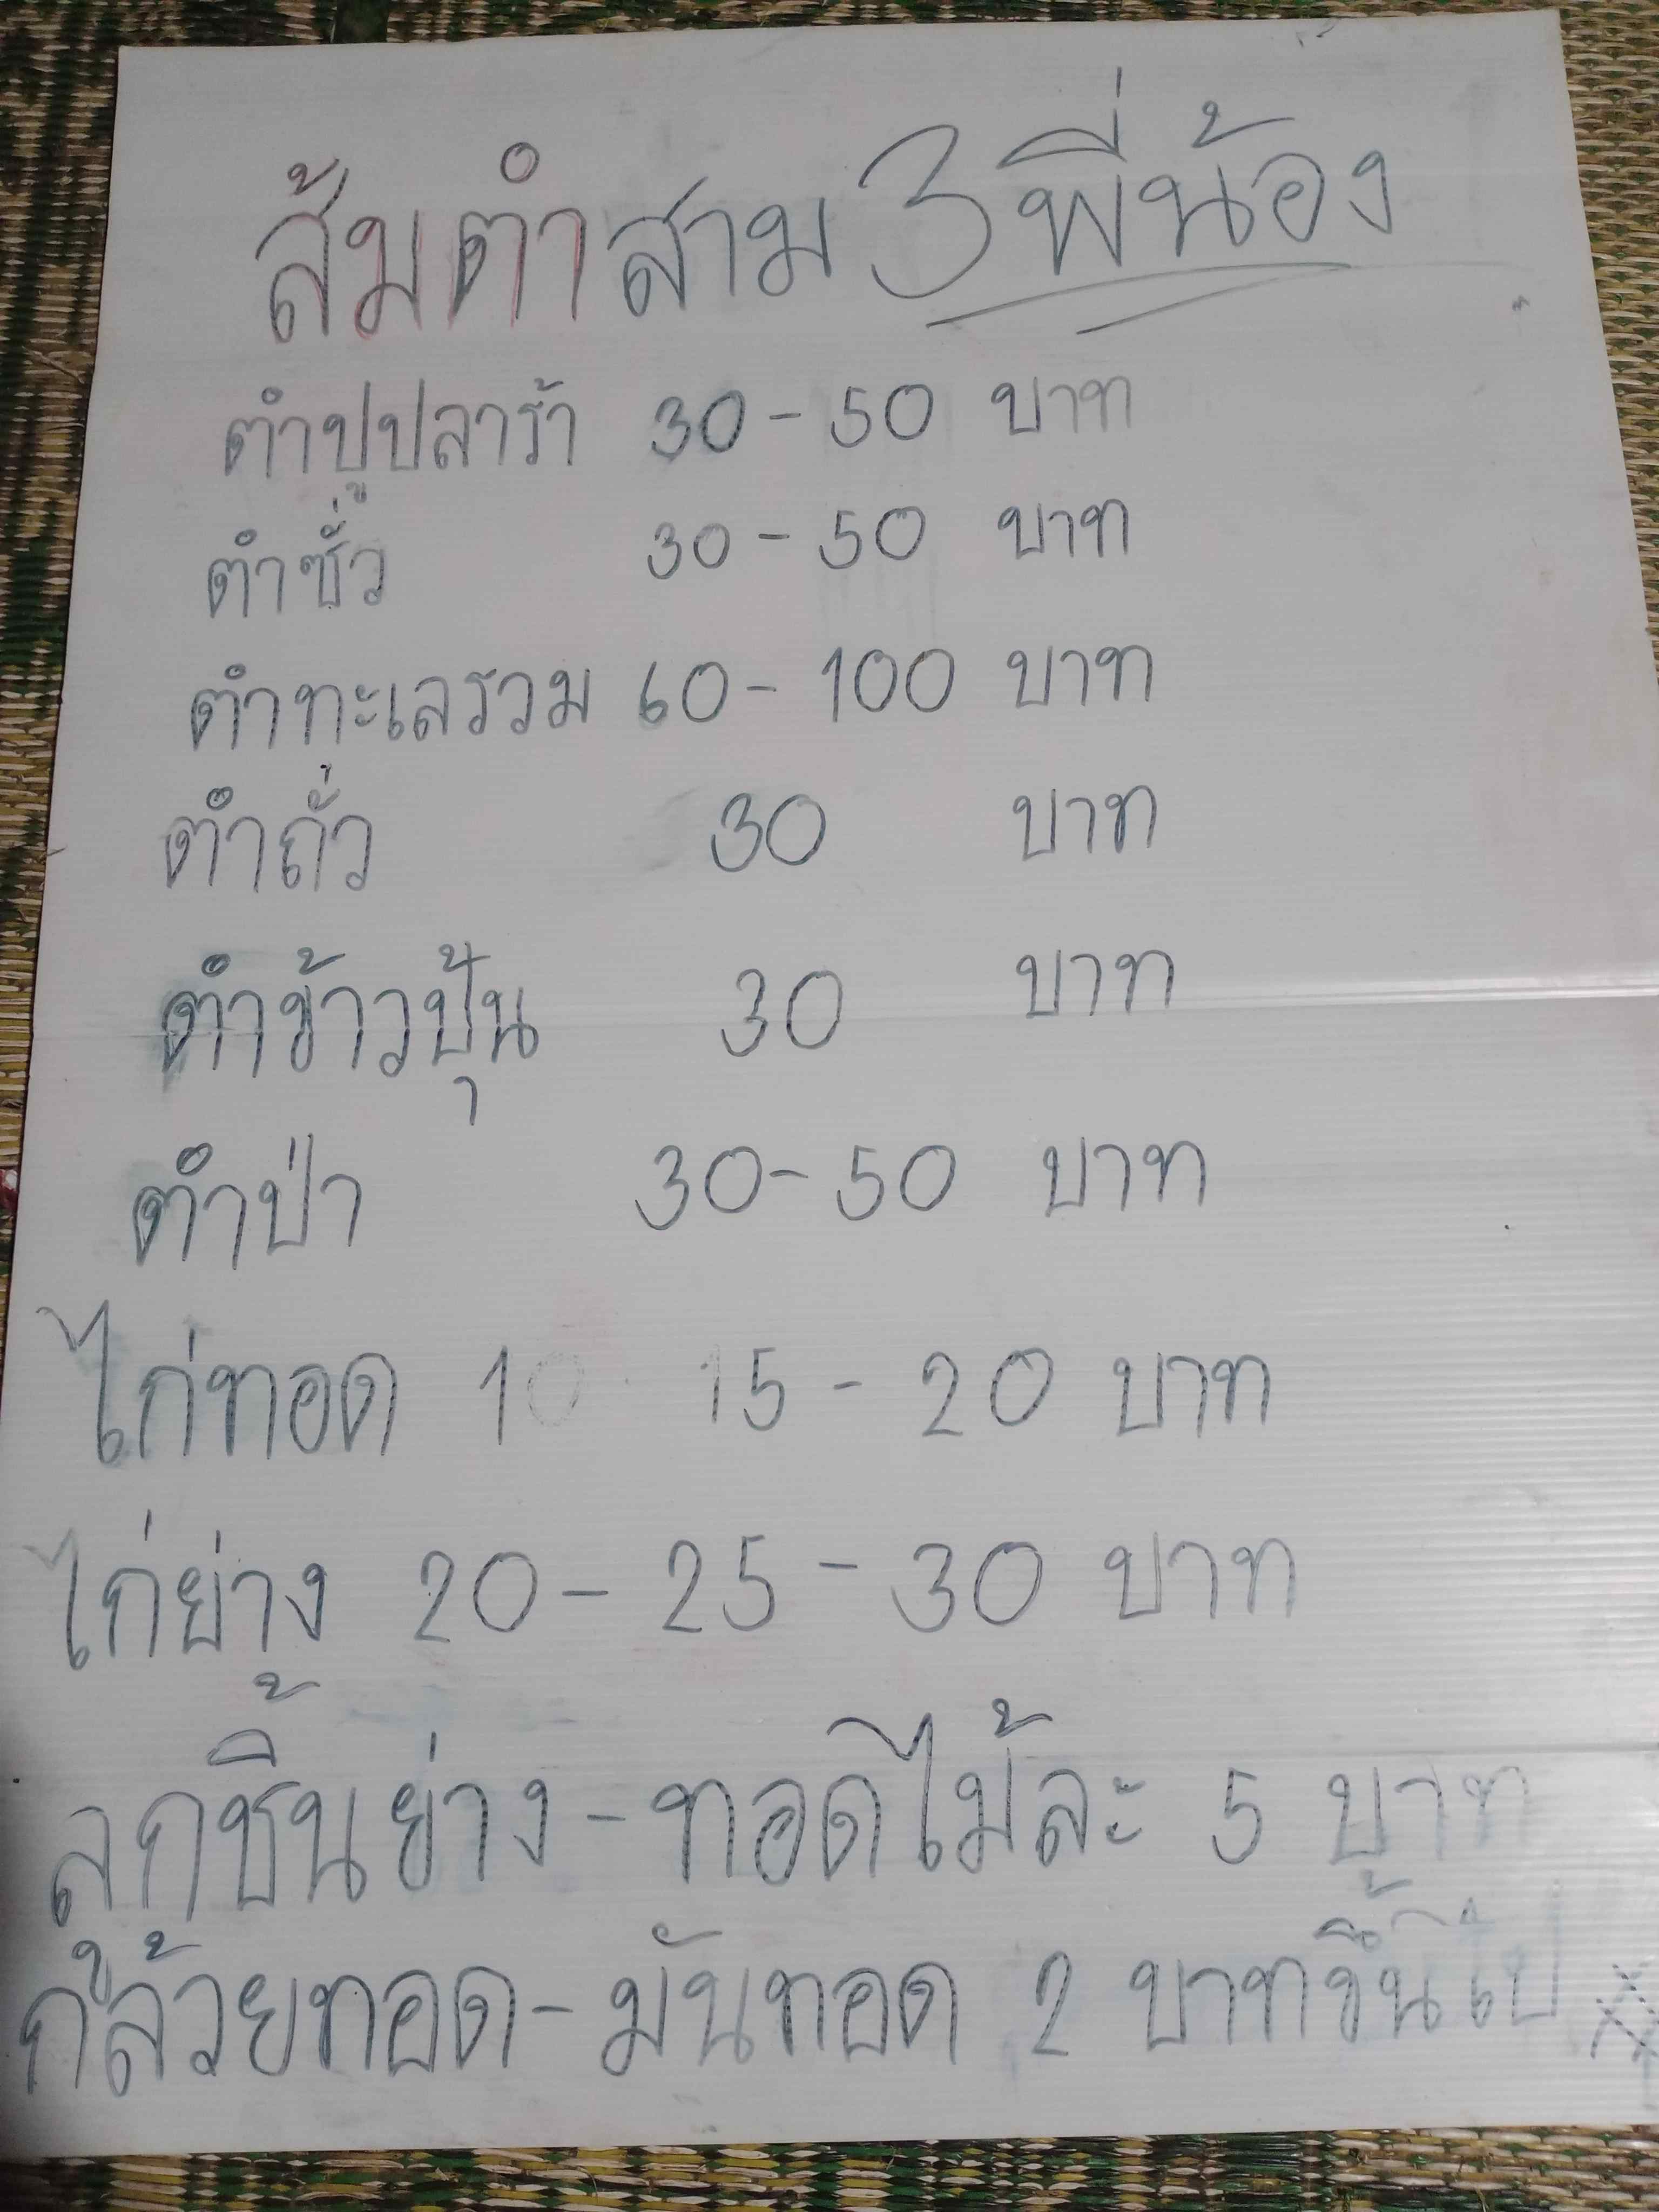 ส้มตำสาม 3 พี่น้อง
ตำปูปลาร้า 30 - 50 บาท
ตำซั่ว 30 - 50 บาท
ตำทะเลรวม 60 - 100 บาท
ตำถั่ว 30 บาท
ตำข้าวปุ้น 30 บาท
ตำป่า 30 - 50 บาท
ไก่ทอด 10 15 - 20 บาท
ไก่ย่าง 20 - 25 - 30 บาท
ลูกชิ้นย่าง - ทอดไม้ละ 5 บาท
กล้วยทอด - มันทอด 2 บาทขึ้นไป